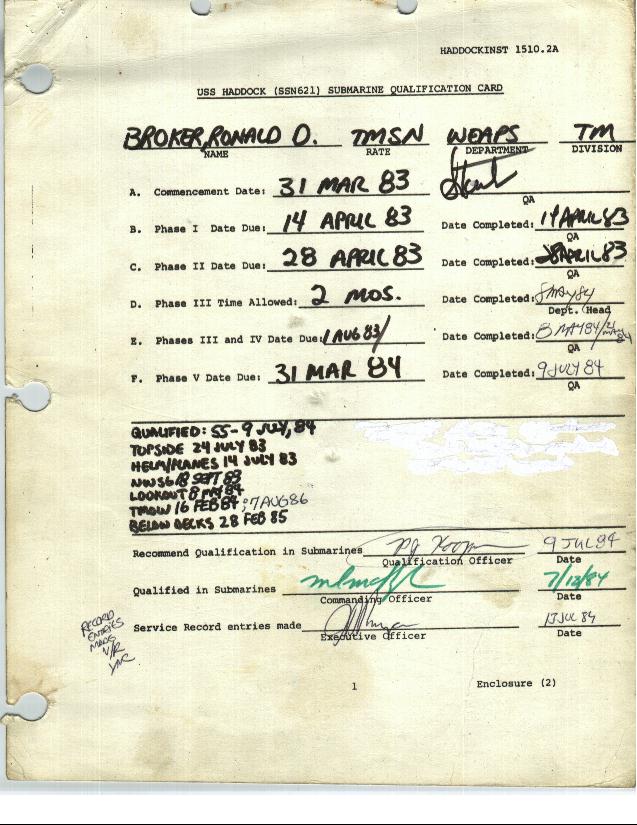 HADDOCKINST 1510.2A
USS HADDOCK (SSN621) SUBMARINE QUALIFICATION CARD
BROKER, RONALD D. TMSN WEAPS TM
NAME RATE DEPARTMENT DIVISION
A. Commencement Date: 31 MAR 83
QA
B. Phase I Date Due: 14 APRIL 83 Date Completed: 14 APRIL 83
QA
C. Phase II Date Due: 28 APRIL 83 Date Completed: 28 APRIL 83
QA
D. Phase III Time Allowed: 2 MOS. Date Completed: 8 MAY 84
Dept. Head
E. Phases III and IV Date Due: 1 AUG 83/ Date Completed: 8 MAY 84/
QA
F. Phase V Date Due: 31 MAR 84 Date Completed: 9 JULY 84
QA
QUALIFIED: SS-9 JULY, 84
TOPSIDE 24 JULY 83
HELM/PLANES 14 JULY 83
NWS 6 SEPT 83
LOOKOUT 8 MAY 84
TMOW 16 FEB 84; 7 AUG 86
BELOW DECKS 28 FEB 85
Recommend Qualification in Submarines 9 JUL 84
Qualification Officer Date
Qualified in Submarines 7/12/84
Commanding Officer Date
Service Record entries made 13 JUL 84
Executive Officer Date
RECORD
ENTRIES
MADE
1 Enclosure (2)